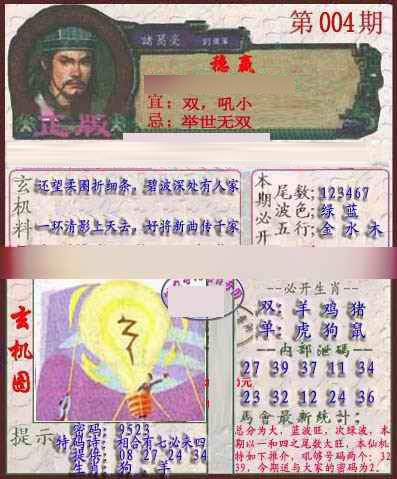 第004期
諸葛亮
稳赢
宜：双，吼小
忌：举世无双
正版
玄机料
还望柔圈折细条，碧波深处有人家
一环清影上天去，好将新曲传千家
本期必开
尾数：123467
波色：绿 蓝
五行：金 水 木
玄机图
--必开生肖--
双：羊 鸡 猪
单：虎 狗 鼠
--内部泄码--
27 39 37 11 34
23 32 12 24 36
马會最新统计：
总分为大，蓝波旺，次绿波，本
期以一和四之尾数大旺，本仙机
特如下推介，吼够号码两个：32
39，今期送与大家的密码为2。
元
提示
密码：9523
特码诗：相合有七必来四
提供：08 27 24 34
生肖：狗，羊